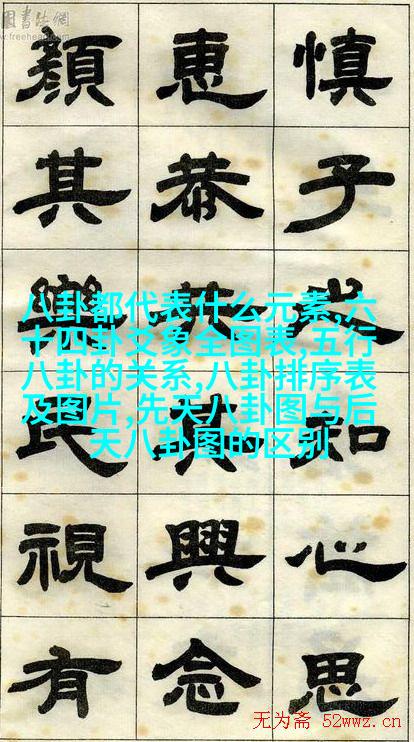 國書法網
慎子知心思
惠恭其興念
顏其樂民視有
八卦都代表什么元素,六
十四卦爻象全图表,五行
八卦的关系,八卦排序表
及图片,先天八卦图与后
天八卦图的区别
无为斋 52wwz.cn